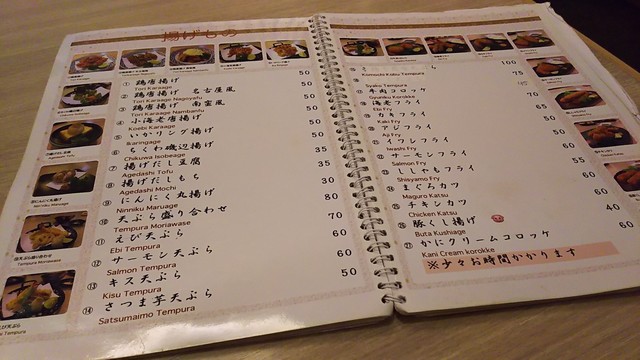 揚げもの
① 鶏唐揚げ 50
Tori Karaage
② 鶏唐揚げ 名古屋風 50
Tori Karaage Nagoyafu
③ 鶏唐揚げ 南蛮風 50
Tori Karaage Nambanfu
④ 小海老唐揚げ 50
Koebi Karaage
⑤ いかリング揚げ 50
Ikaringage
⑥ ちくわ磯辺揚げ 50
Chikuwa Isobeage
⑦ 揚げだし豆腐 35
Agedashi Tofu
⑧ 揚げだしもち 35
Agedashi Mochi
⑨ にんにく丸揚げ 30
Ninniku Maruage
⑩ 天ぷら盛り合わせ 80
Tempura Moriawase
⑪ えび天ぷら 70
Ebi Tempura
⑫ サーモン天ぷら 60
Salmon Tempura
⑬ キス天ぷら 60
Kisu Tempura
⑭ さつま芋天ぷら 50
Satsumaimo Tempura
Komochi Kaku Tempura 100
Syako Tempura 75
牛肉コロッケ
Gyuniku Korokke
海老フライ 70
Ebi Fry
カキフライ 65
Kaki Fry
アジフライ 50
Aji Fry
イワシフライ
Iwashi Fry
サーモンフライ
Salmon Fry
ししゃもフライ 55
Shisyamo Fry
まぐろカツ 60
Maguro Katsu
チキンカツ 60
Chicken Katsu
豚くし揚げ 40
Buta Kushiage
かにクリームコロッケ 60
Kani Cream korokke
※少々お時間かかります